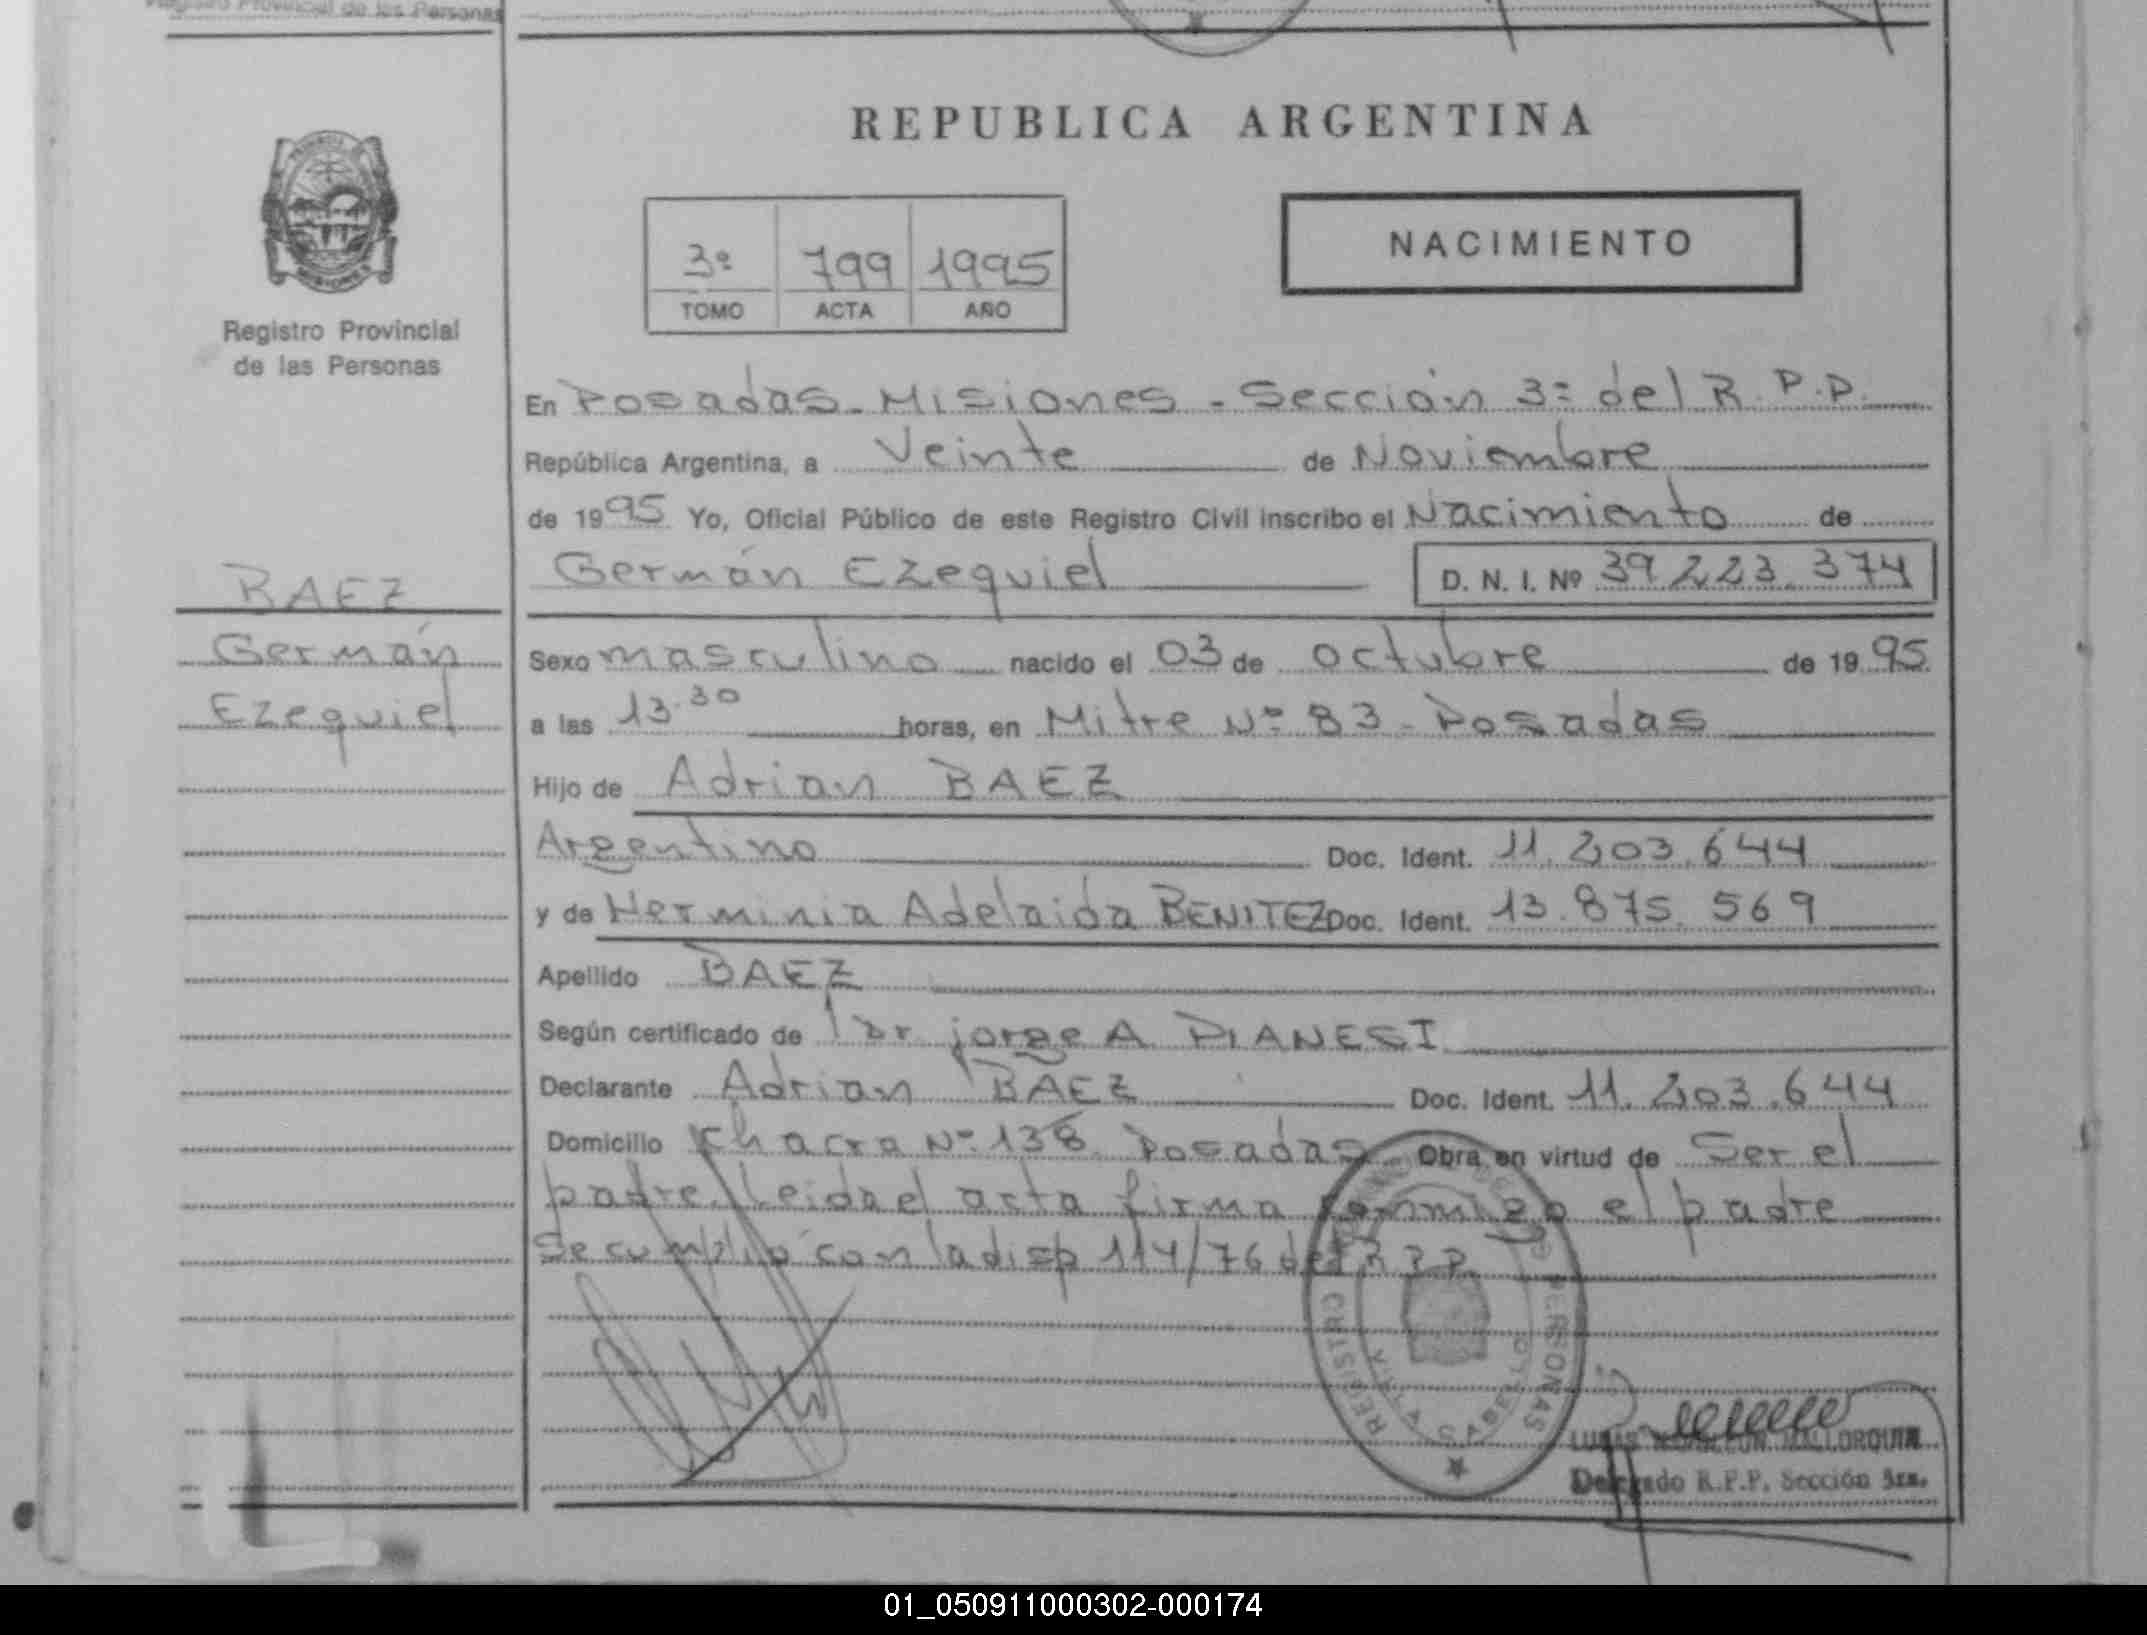 Registro Provincial de las Personas
REPUBLICA ARGENTINA
NACIMIENTO
3º 799 1995
TOMO ACTA AÑO
Registro Provincial
de las Personas
En Posadas - Misiones - Sección 3ª del R.P.P.
República Argentina, a Veinte de Noviembre
de 1995 Yo, Oficial Público de este Registro Civil inscribo el Nacimiento de
Germán Ezequiel D. N. I. Nº 39.223.374
BAEZ
Germán
Ezequiel
Sexo masculino nacido el 03 de octubre de 1995.
a las 13.30 horas, en Mitre Nº 83 - Posadas
Hijo de Adrian BAEZ
Argentino Doc. Ident. 11.203.644
y de Herminia Adelaida BENITEZ Doc. Ident. 13.875.569
Apellido BAEZ
Según certificado de Dr. Jorge A. PIANESI
Declarante Adrian BAEZ Doc. Ident. 11.203.644
Domicilio Chacra Nº 138 Posadas Obra en virtud de Ser el
padre. Leida el acta firma conmigo el padre
Se cumplió con la disp 114/76 del R.P.P.
REGISTRO PERSONAS
POSADAS
MALLORQUIN
Delegado R.P.P. Sección 3ra.
01_050911000302-000174